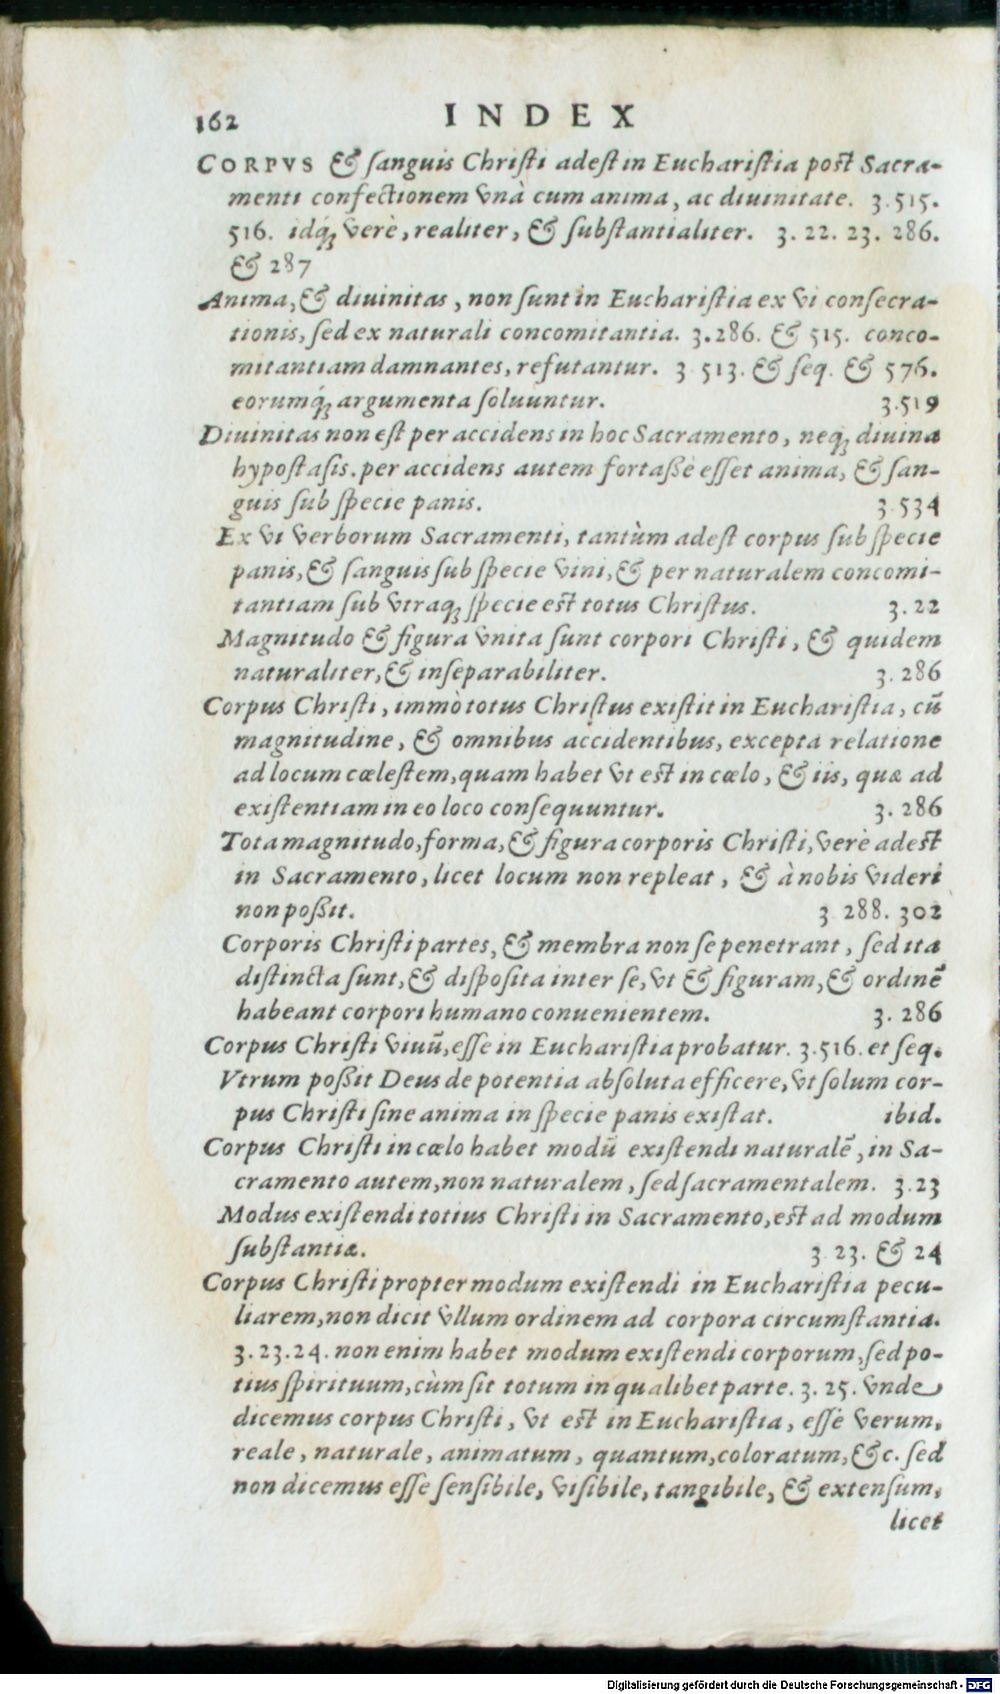 162 INDEX
CORPVS & ſanguis Chriſti adeſt in Euchariſtia poſt Sacra-
menti confectionem vnà cum anima, ac diuinitate. 3.515.
516. idq́ꝫ verè, realiter, & ſubſtantialiter. 3. 22. 23. 286.
& 287
Anima, & diuinitas, non ſunt in Euchariſtia ex vi conſecra-
tionis, ſed ex naturali concomitantia. 3.286. & 515. conco-
mitantiam damnantes, refutantur. 3 513. & ſeq. & 576.
eorumq́ꝫ argumenta ſoluuntur. 3.519
Diuinitas non eſt per accidens in hoc Sacramento, neqꝫ diuina
hypoſtaſis. per accidens autem fortaßè eſſet anima, & ſan-
guis ſub ſpecie panis. 3 534
Ex vi verborum Sacramenti, tantùm adeſt corpus ſub ſpecie
panis, & ſanguis ſub ſpecie vini, & per naturalem concomi-
tantiam ſub vtraqꝫ ſpecie eſt totus Chriſtus. 3.22
Magnitudo & figura vnita ſunt corpori Chriſti, & quidem
naturaliter, & inſeparabiliter. 3. 286
Corpus Chriſti, immò totus Chriſtus exiſtit in Euchariſtia, cū
magnitudine, & omnibus accidentibus, excepta relatione
ad locum cœleſtem, quam habet vt eſt in cœlo, & iis, quæ ad
exiſtentiam in eo loco conſequuntur. 3. 286
Tota magnitudo, forma, & figura corporis Chriſti, verè adeſt
in Sacramento, licet locum non repleat, & à nobis videri
non poßit. 3 288. 302
Corporis Chriſti partes, & membra non ſe penetrant, ſed ita
diſtincta ſunt, & diſpoſita inter ſe, vt & figuram, & ordinē
habeant corpori humano conuenientem. 3. 286
Corpus Chriſti viuū, eſſe in Euchariſtia probatur. 3.516. et ſeq.
Vtrum poßit Deus de potentia abſoluta efficere, vt ſolum cor-
pus Chriſti ſine anima in ſpecie panis exiſtat. ibid.
Corpus Chriſti in cœlo habet modū exiſtendi naturalē, in Sa-
cramento autem, non naturalem, ſed ſacramentalem. 3.23
Modus exiſtendi totius Chriſti in Sacramento, eſt ad modum
ſubſtantiæ. 3 23. & 24
Corpus Chriſti propter modum exiſtendi in Euchariſtia pecu-
liarem, non dicit vllum ordinem ad corpora circumſtantia.
3.23.24. non enim habet modum exiſtendi corporum, ſed po-
tius ſpirituum, cùm ſit totum in qualibet parte. 3. 25. vnde
dicemus corpus Chriſti, vt eſt in Euchariſtia, eſſe verum,
reale, naturale, animatum, quantum, coloratum, &c. ſed
non dicemus eſſe ſenſibile, viſibile, tangibile, & extenſum,
licet
Digitalisierung gefördert durch die Deutsche Forschungsgemeinschaft - DFG